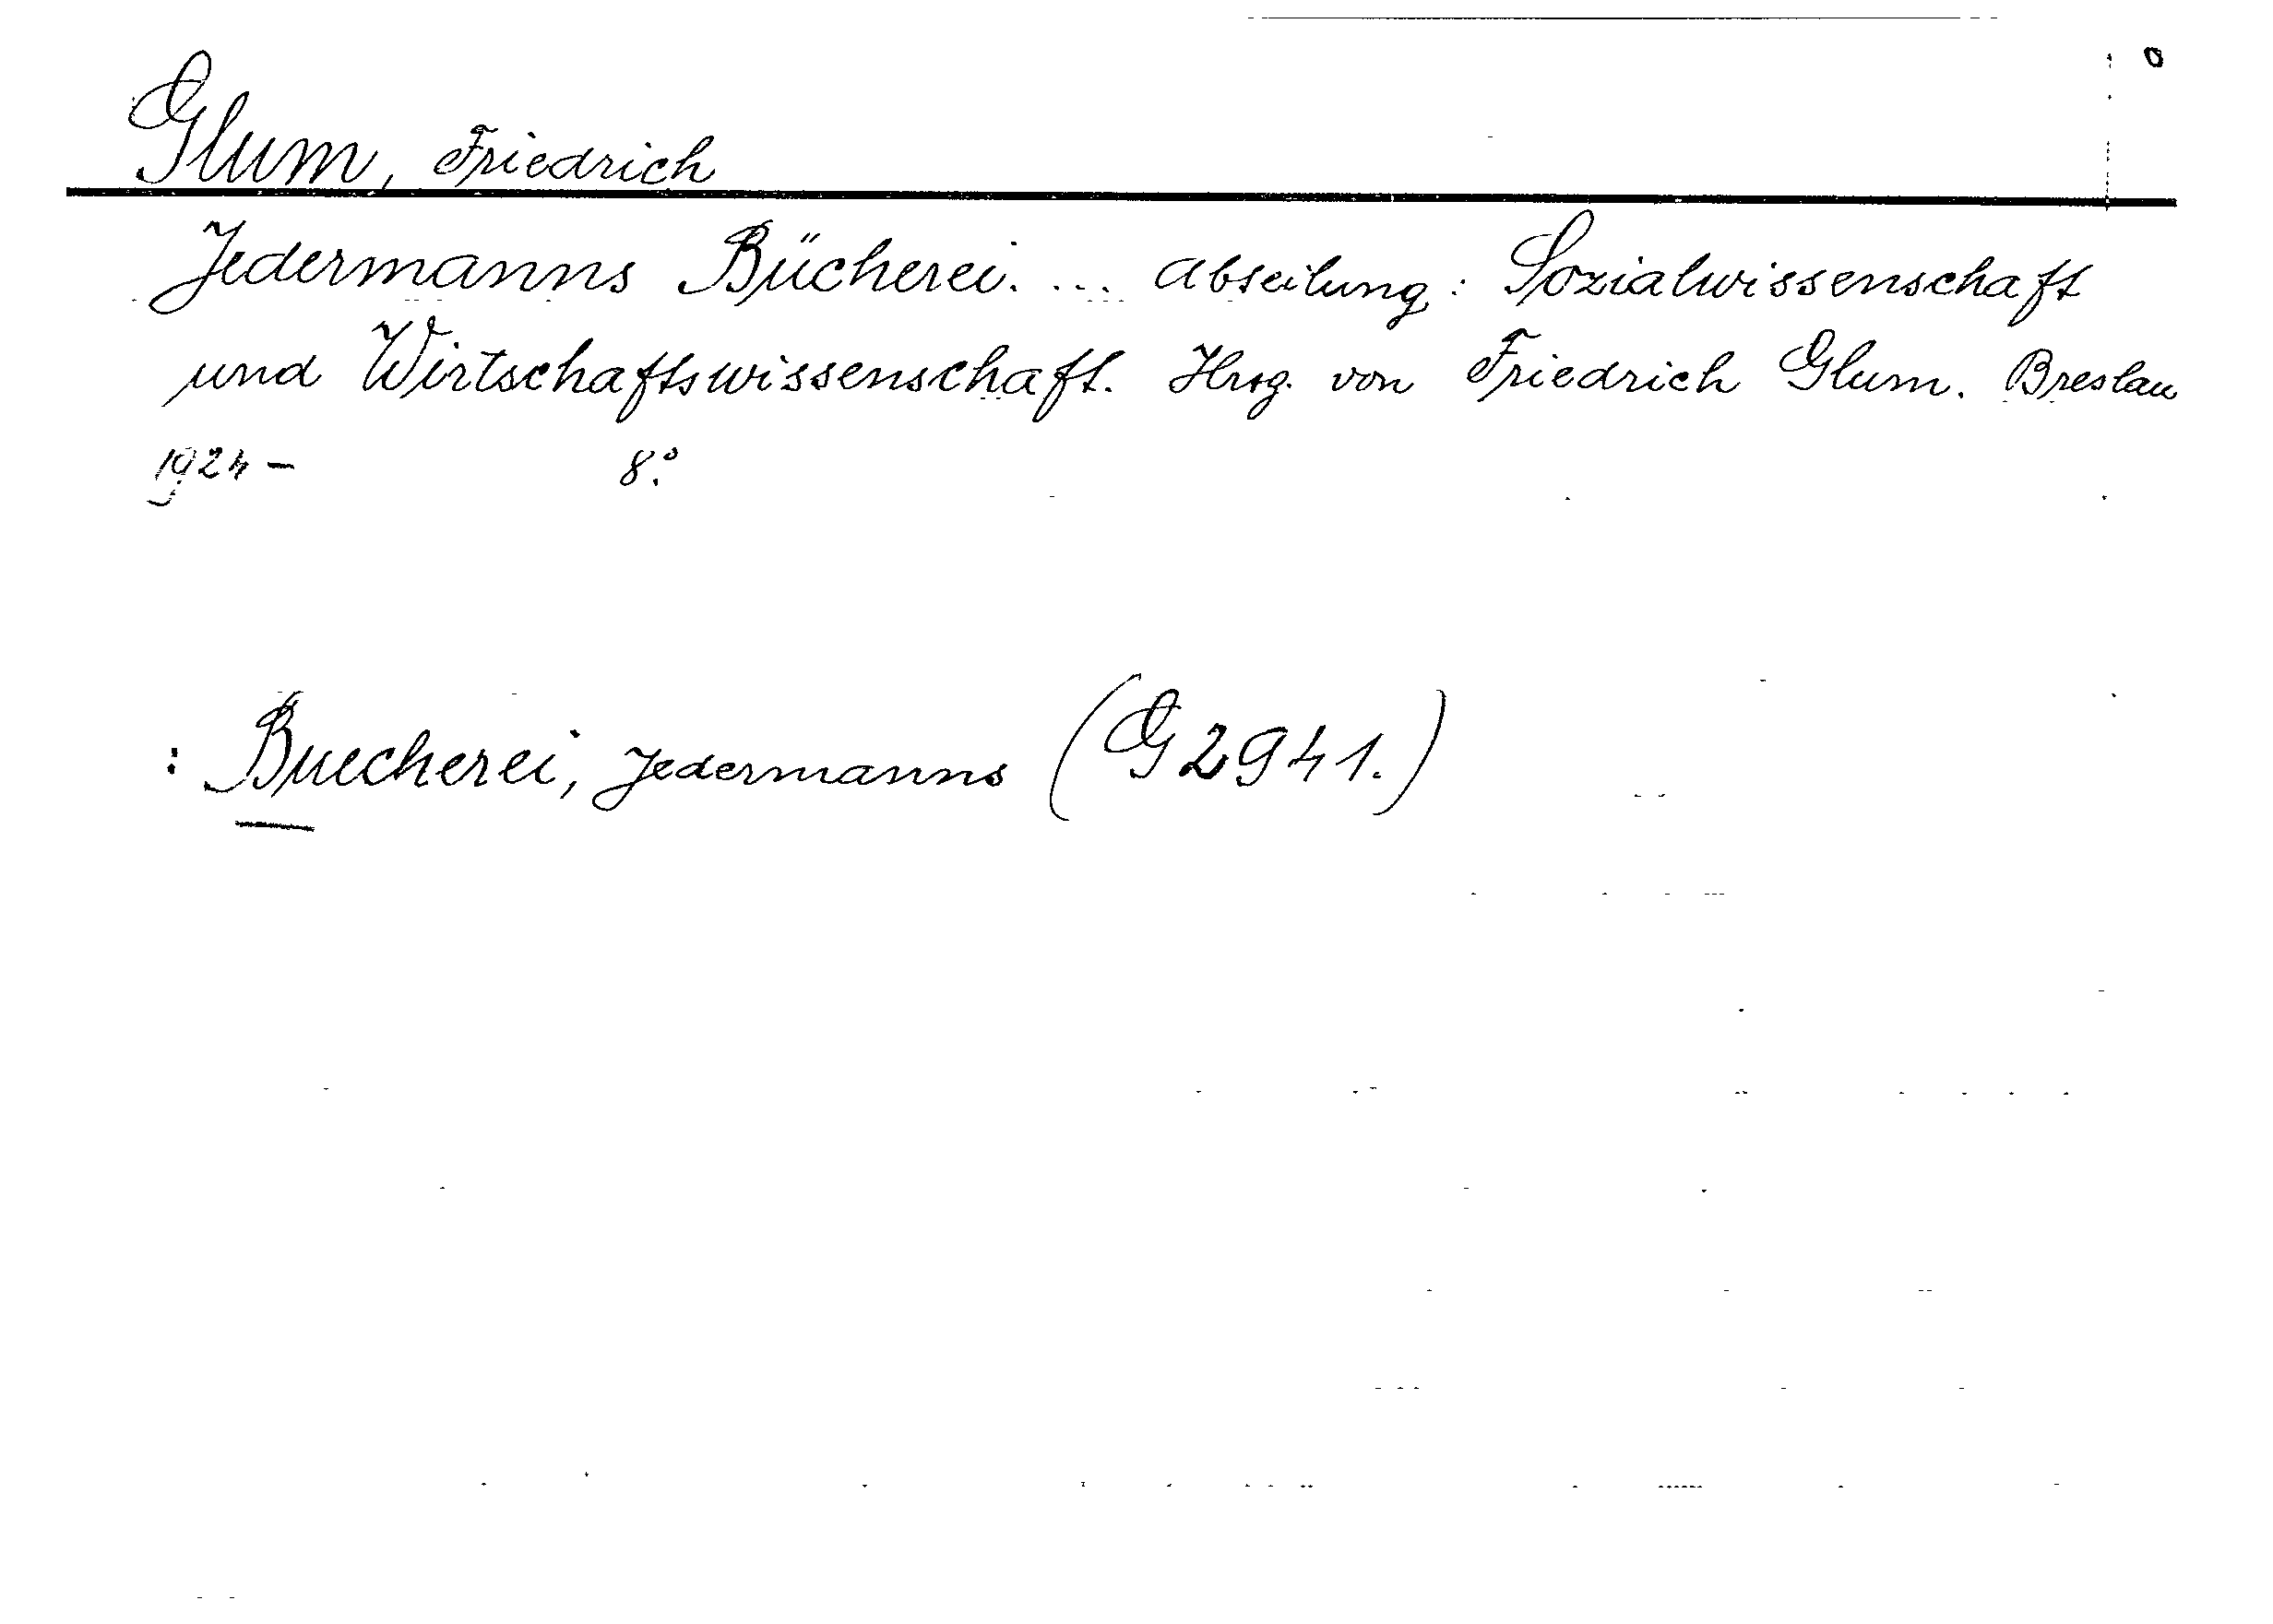 Glum, Friedrich
Jedermanns Bücherei. ... Abteilung: Sozialwissenschaft
und Wirtschaftswissenschaft. Hrsg. von Friedrich Glum. Breslau
1924- 8.°
: Buecherei, Jedermanns (G 2941.)